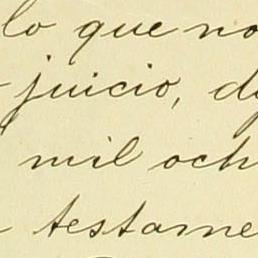 lo que no
juicio, d
mil och
testame